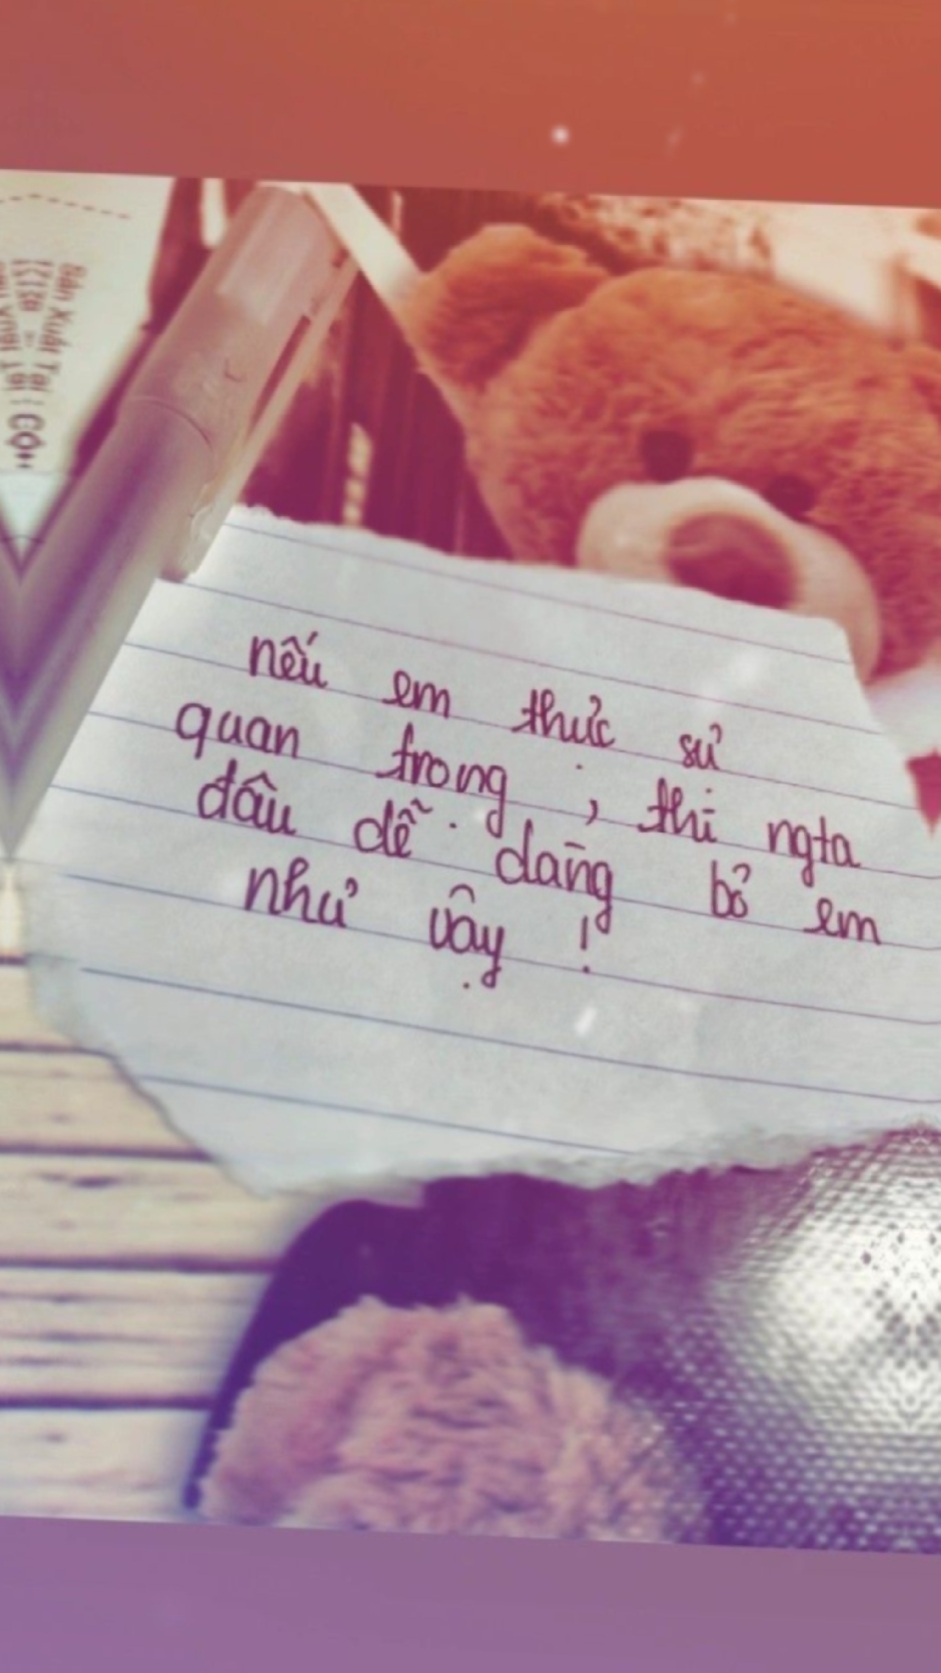 Sản Xuất Tại : CÔ
nếu em thực sự
quan trọng, thì ngta
đâu dễ dàng bỏ em
như vậy !